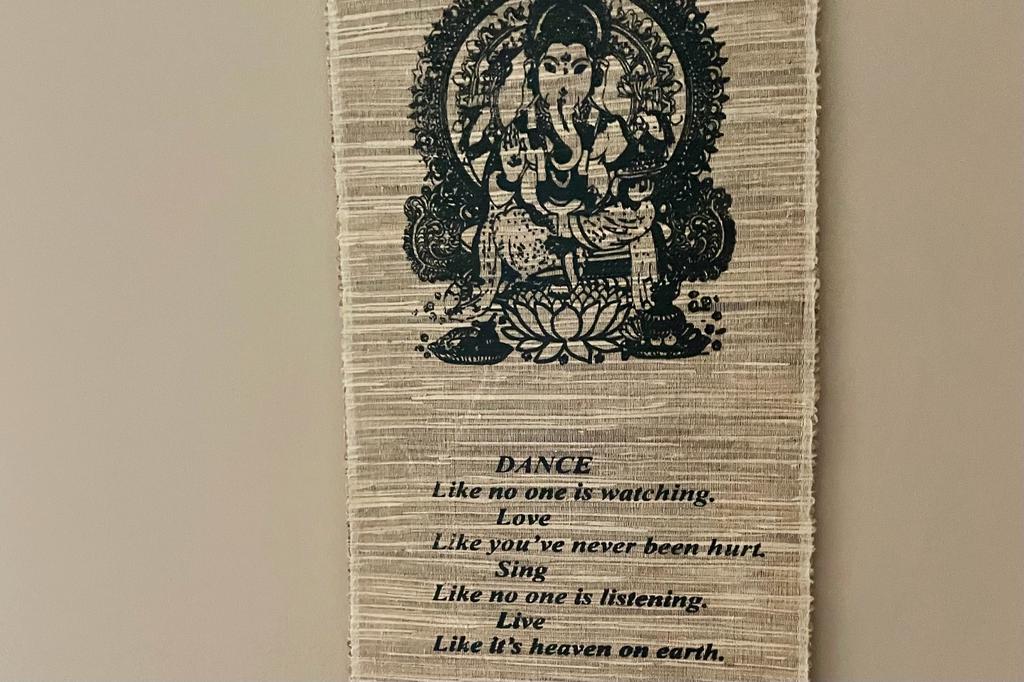 DANCE
Like no one is watching.
Love
Like you've never been hurt.
Sing
Like no one is listening.
Live
Like it's heaven on earth.